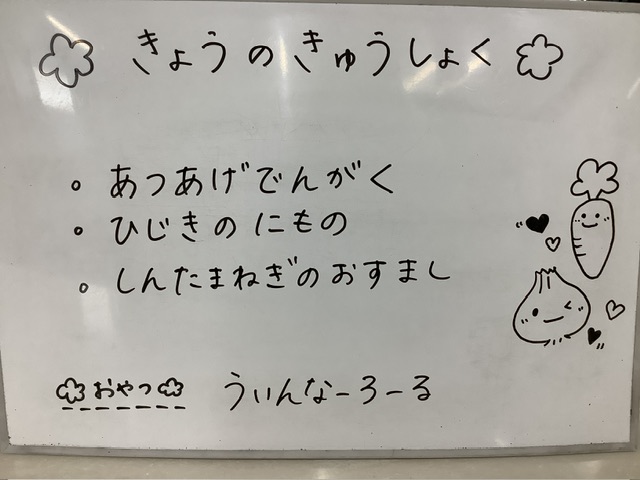 きょうのきゅうしょく
・あつあげでんがく
・ひじきのにもの
・しんたまねぎのおすまし
おやつ ういんなーろーる